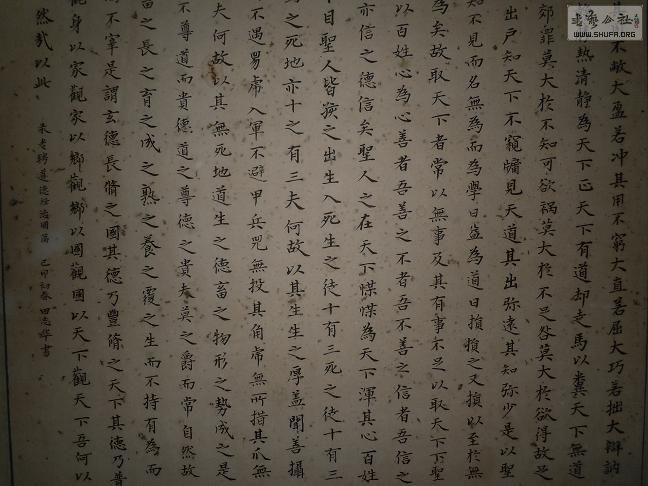 其用不敝大盈若冲其用不窮大直若屈大巧若拙大辯訥
熱清静為天下正天下有道却走馬以糞天下無道
郊罪莫大於不知可欲禍莫大於不足咎莫大於欲得故足
出戶知天下不窺牖見天道其出弥遠其知弥少是以聖
知不見而名無為而為學日益為道日損損之又損以至於無
為矣故取天下者常以無事及其有事不足以取天下下聖
以百姓心為心善者吾善之不者吾不善之信者吾信之
亦信之德信矣聖人之在天下惵惵為天下渾其心百姓
目聖人皆孩之出生入死生之徒十有三死之徒十有三
之死地亦十之有三夫何故以其生生之厚盖聞善攝
不遇虎入軍不避甲兵兕無投其角虎無所措其爪無
夫何故以其無死地道生之德畜之物形之勢成之是
不尊道而貴德道之尊德之貴夫莫之爵而常自然故
畜之長之育之成之熟之養之覆之生而不持有為而
不宰是謂玄德長脩之國其德乃豐脩之天下其德乃普
觀身以家觀家以鄉觀鄉以國觀國以天下觀天下吾何以
然哉以此
录老聃道德经 己卯初春 田志华書
书法公社
www.SHUFA.ORG